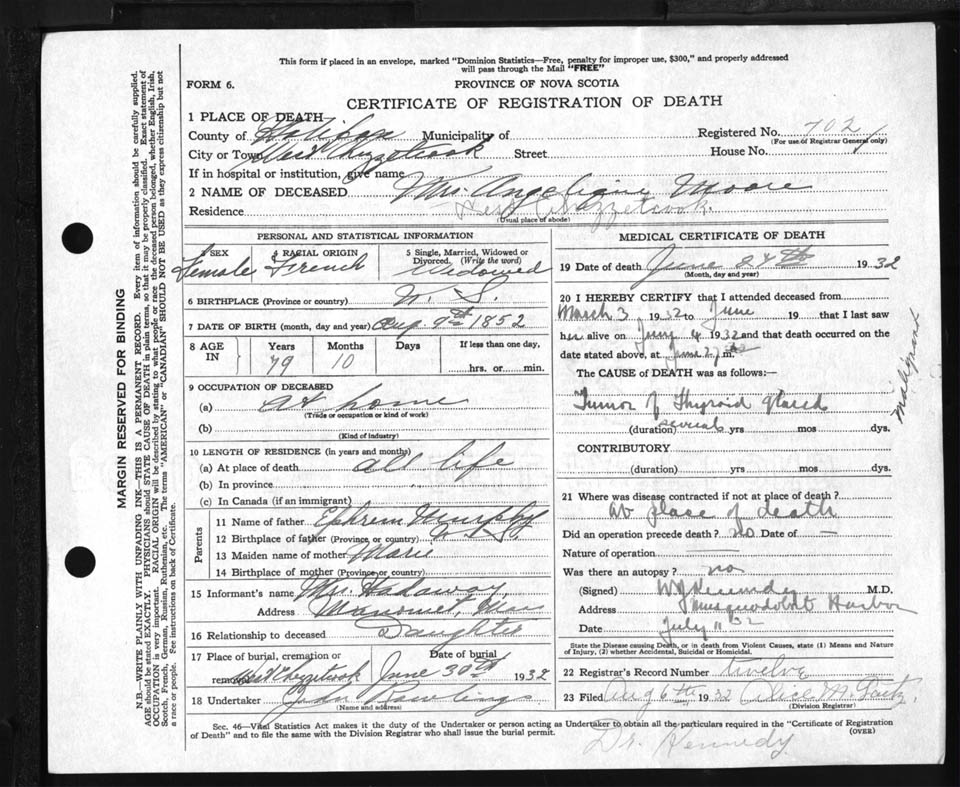 This form if placed in an envelope, marked "Dominion Statistics—Free, penalty for improper use, $300," and properly addressed
will pass through the Mail "FREE"
FORM 6.
PROVINCE OF NOVA SCOTIA
CERTIFICATE OF REGISTRATION OF DEATH
1 PLACE OF DEATH
County of Halifax Municipality of
Registered No. 702
(For use of Registrar General only)
City or Town West Chezzetcook Street House No.
If in hospital or institution, give name
2 NAME OF DECEASED Mrs. Angelique Moore
Residence West Chezzetcook.
(Usual place of abode)
PERSONAL AND STATISTICAL INFORMATION
3 SEX Female
4 RACIAL ORIGIN French
5 Single, Married, Widowed or
Divorced. (Write the word)
Widowed
6 BIRTHPLACE (Province or country) N. S.
7 DATE OF BIRTH (month, day and year) Aug. 9th 1852
8 AGE IN Years Months Days If less than one day,
79 10 hrs. or min.
9 OCCUPATION OF DECEASED
(a) At home
(Trade or occupation or kind of work)
(b)
(Kind of industry)
10 LENGTH OF RESIDENCE (in years and months)
(a) At place of death all life
(b) In province
(c) In Canada (if an immigrant)
Parents
11 Name of father Ephrem Murphy
12 Birthplace of father (Province or country)
13 Maiden name of mother Marie
14 Birthplace of mother (Province or country)
15 Informant's name Mrs
Address Manomet, Mass
16 Relationship to deceased Daughter
17 Place of burial, cremation or
removal West Chezzetcook
Date of burial
June 30th 1932
18 Undertaker John Rawlings
(Name and address)
MEDICAL CERTIFICATE OF DEATH
19 Date of death June 1932
(Month, day and year)
20 I HEREBY CERTIFY that I attended deceased from
March 3, 1932 to June 19 that I last saw
her alive on June 4 1932 and that death occurred on the
date stated above, at June 27 m.
The CAUSE of DEATH was as follows:—
Tumor of Thyroid gland
malignant
(duration) several yrs mos dys.
CONTRIBUTORY
(duration) yrs mos dys.
21 Where was disease contracted if not at place of death?
at place of death
Did an operation precede death? no Date of —
Nature of operation
Was there an autopsy? no
(Signed) W J Kennedy M.D.
Address Musquodoboit Harbor
Date July 11 32
State the Disease causing Death, or in death from Violent Causes, state (1) Means and
Nature of Injury, (2) whether Accidental, Suicidal or Homicidal.
22 Registrar's Record Number twelve
23 Filed Aug 6th 1932 Alice M.
(Division Registrar)
Sec. 46—Vital Statistics Act makes it the duty of the Undertaker or person acting as Undertaker to obtain all the particulars required in the "Certificate of Registration
of Death" and to file the same with the Division Registrar who shall issue the burial permit.
(OVER)
Dr. Kennedy
MARGIN RESERVED FOR BINDING
N.B.—WRITE PLAINLY WITH UNFADING INK—THIS IS A PERMANENT RECORD. Every item of information should be carefully supplied.
AGE should be stated EXACTLY. PHYSICIANS should STATE CAUSE OF DEATH in plain terms, so that it may be properly classified. Exact statement of
OCCUPATION is very important. RACIAL ORIGIN will be described by stating to what people or race the deceased person belonged, whether English, Irish,
Scotch, French, German, Russian, Ruthenian, etc. The terms "AMERICAN" or "CANADIAN" SHOULD NOT BE USED as they express citizenship but not
a race or people. See instructions on back of Certificate.